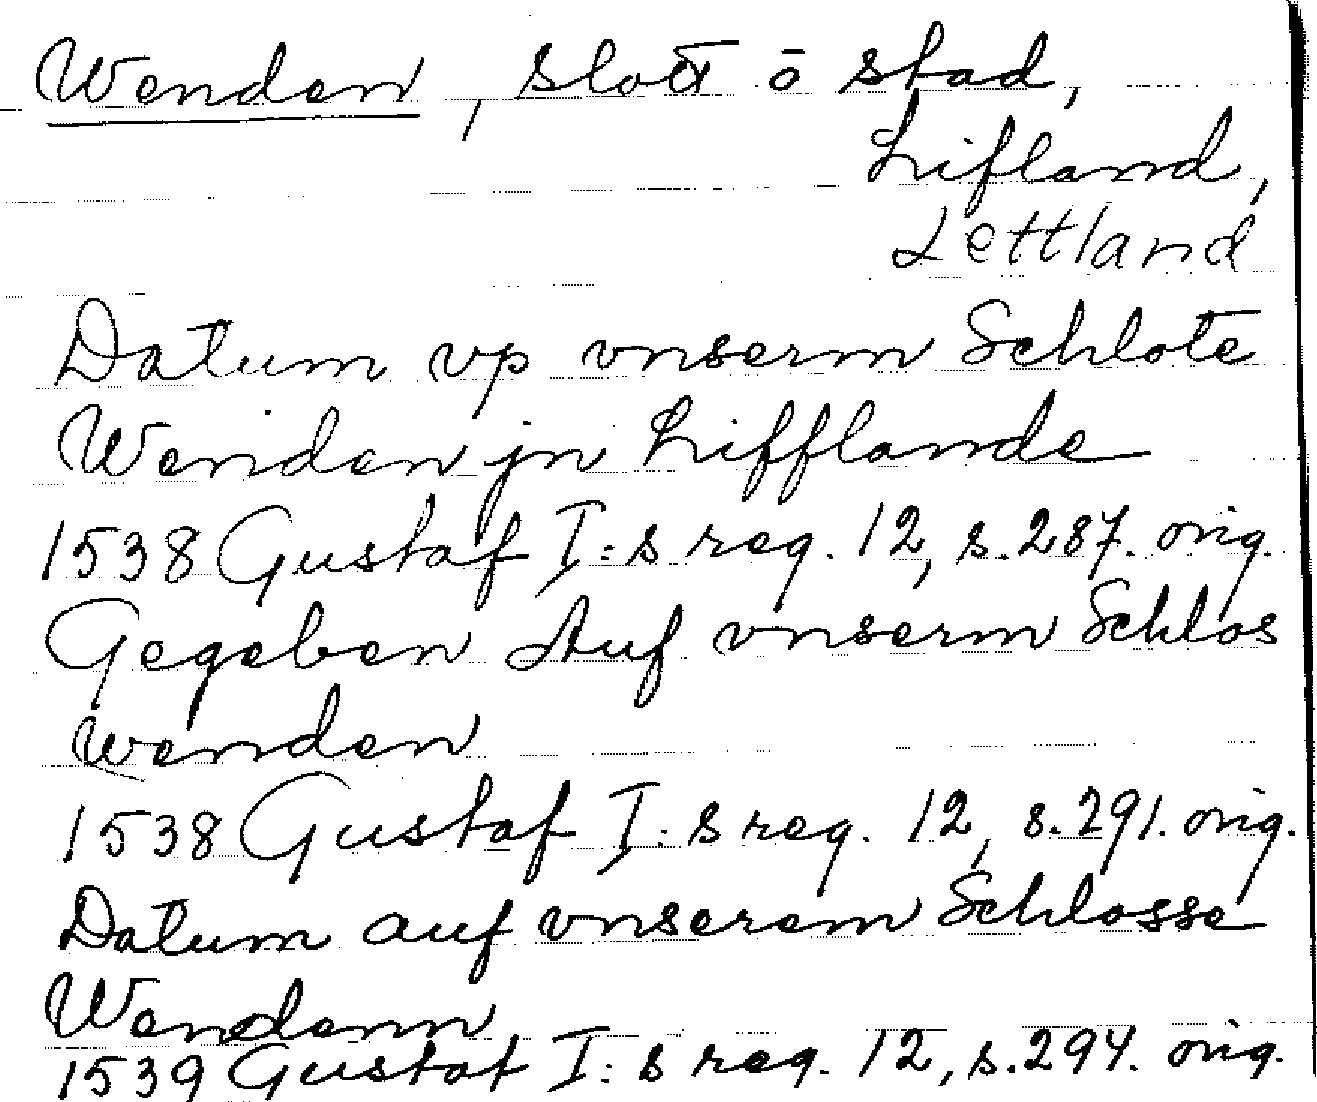 Wenden, slott o stad,
Lifland,
Lettland
Datum vp vnserm Schlote
Wenden jn Lifflande
1538 Gustaf I:s reg. 12, s. 287. orig.
Gegeben Auf vnserm Schlos
wenden
1538 Gustaf I:s reg. 12, s. 291. orig.
Datum auf vnserem Schlosse
Wendenn
1539 Gustaf I:s reg. 12, s. 294. orig.